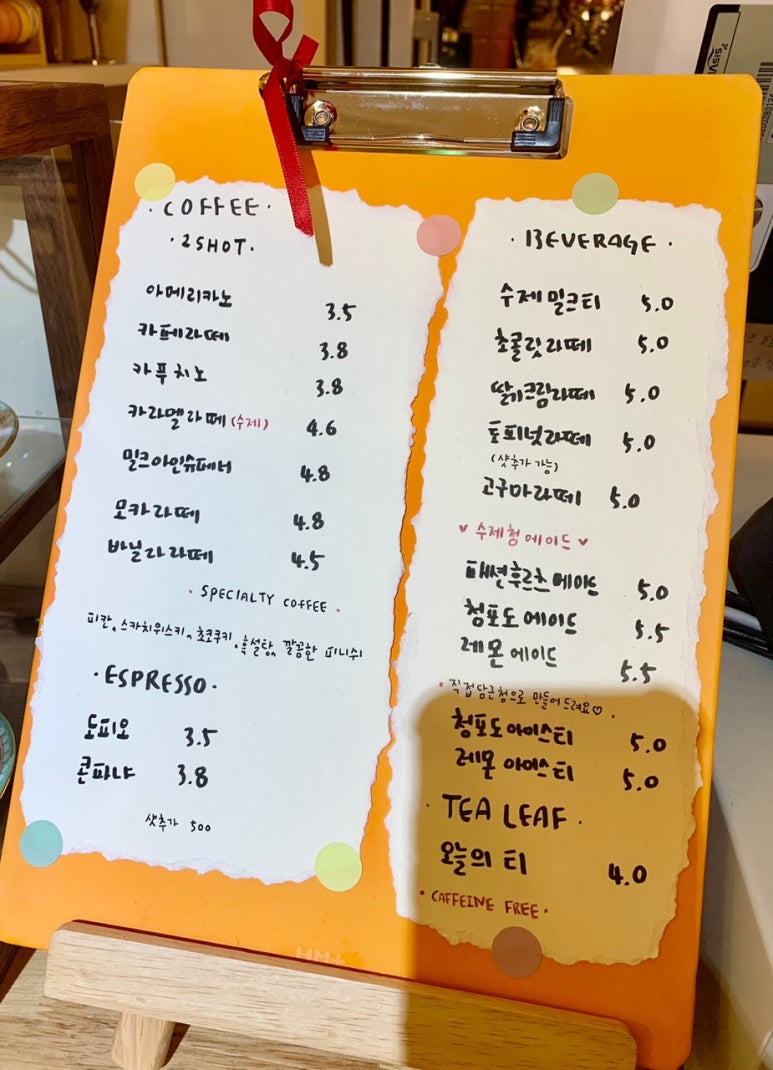 · COFFEE ·
· 2SHOT ·
아메리카노 3.5
카페라떼 3.8
카푸치노 3.8
카라멜라떼 (수제) 4.6
밀크아인슈페너 4.8
모카라떼 4.8
바닐라라떼 4.5
· SPECIALTY COFFEE ·
피칸, 스카치위스키, 초코쿠키, 흑설탕, 깔끔한 피니쉬
· ESPRESSO ·
도피오 3.5
콘파냐 3.8
샷추가 500
· BEVERAGE ·
수제밀크티 5.0
초콜릿라떼 5.0
딸기크림라떼 5.0
토피넛라떼 5.0
(샷추가 가능)
고구마라떼 5.0
♥ 수제청에이드 ♥
패션후르츠에이드 5.0
청포도에이드 5.5
레몬에이드 5.5
· 직접담근청으로 만들어드려요♡ ·
청포도아이스티 5.0
레몬아이스티 5.0
· TEA LEAF ·
오늘의 티 4.0
· CAFFEINE FREE ·
HM+